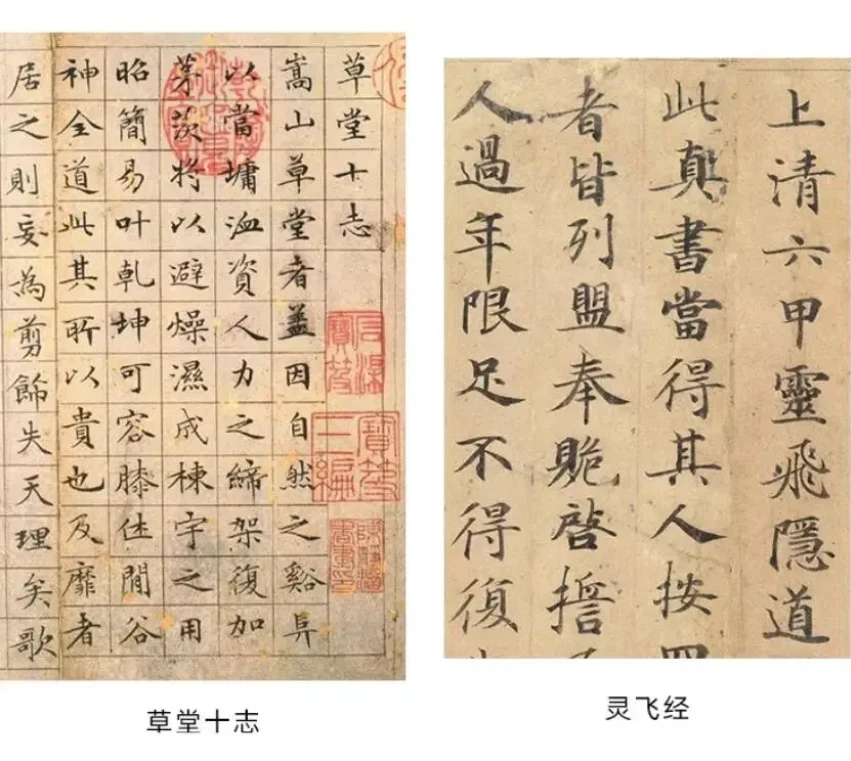 草堂十志
嵩山草堂者盖因自然之谿阜
以當墉洫資人力之締架復加
茅茨將以避燥濕成棟宇之用
昭簡易叶乾坤可容膝休閒谷
神全道此其所以貴也及靡者
居之則妄為剪飾失天理矣歌
草堂十志
上清六甲靈飛隱道
此真書當得其人按四
者皆列盟奉䞈啓
人過年限足不得復
灵飞经